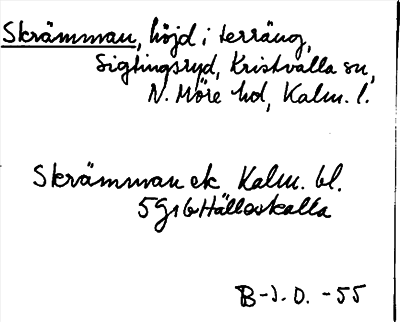 Skrämman, höjd i terräng,
Sigtingsryd, Kristvalla sn,
N. Möre hd, Kalm. l.
Skrämman ek Kalm. bl.
5G1b Hälleskalla
B-J. O. -55